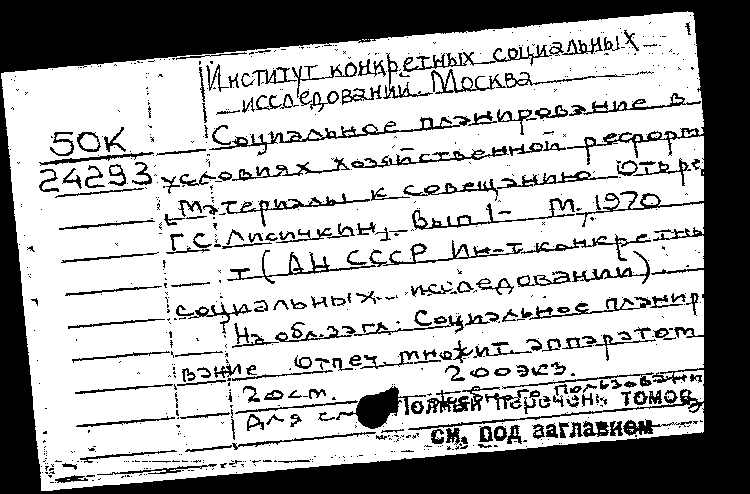 Институт конкретных социальных
исследований. Москва
50К
24293
Социальное планирование в
условиях хозяйственной реформ
[Материалы к совещанию. Отв. ре
Г.С. Лисичкин]. Вып 1- М., 1970
т (АН СССР Ин-т конкретны
социальных исследований).
На обл. загл.: Социальное планир
вание Отпеч. множит. аппаратом
20 ст. 200 экз.
Для пользовани
Полный перечень томов
см. под заглавием